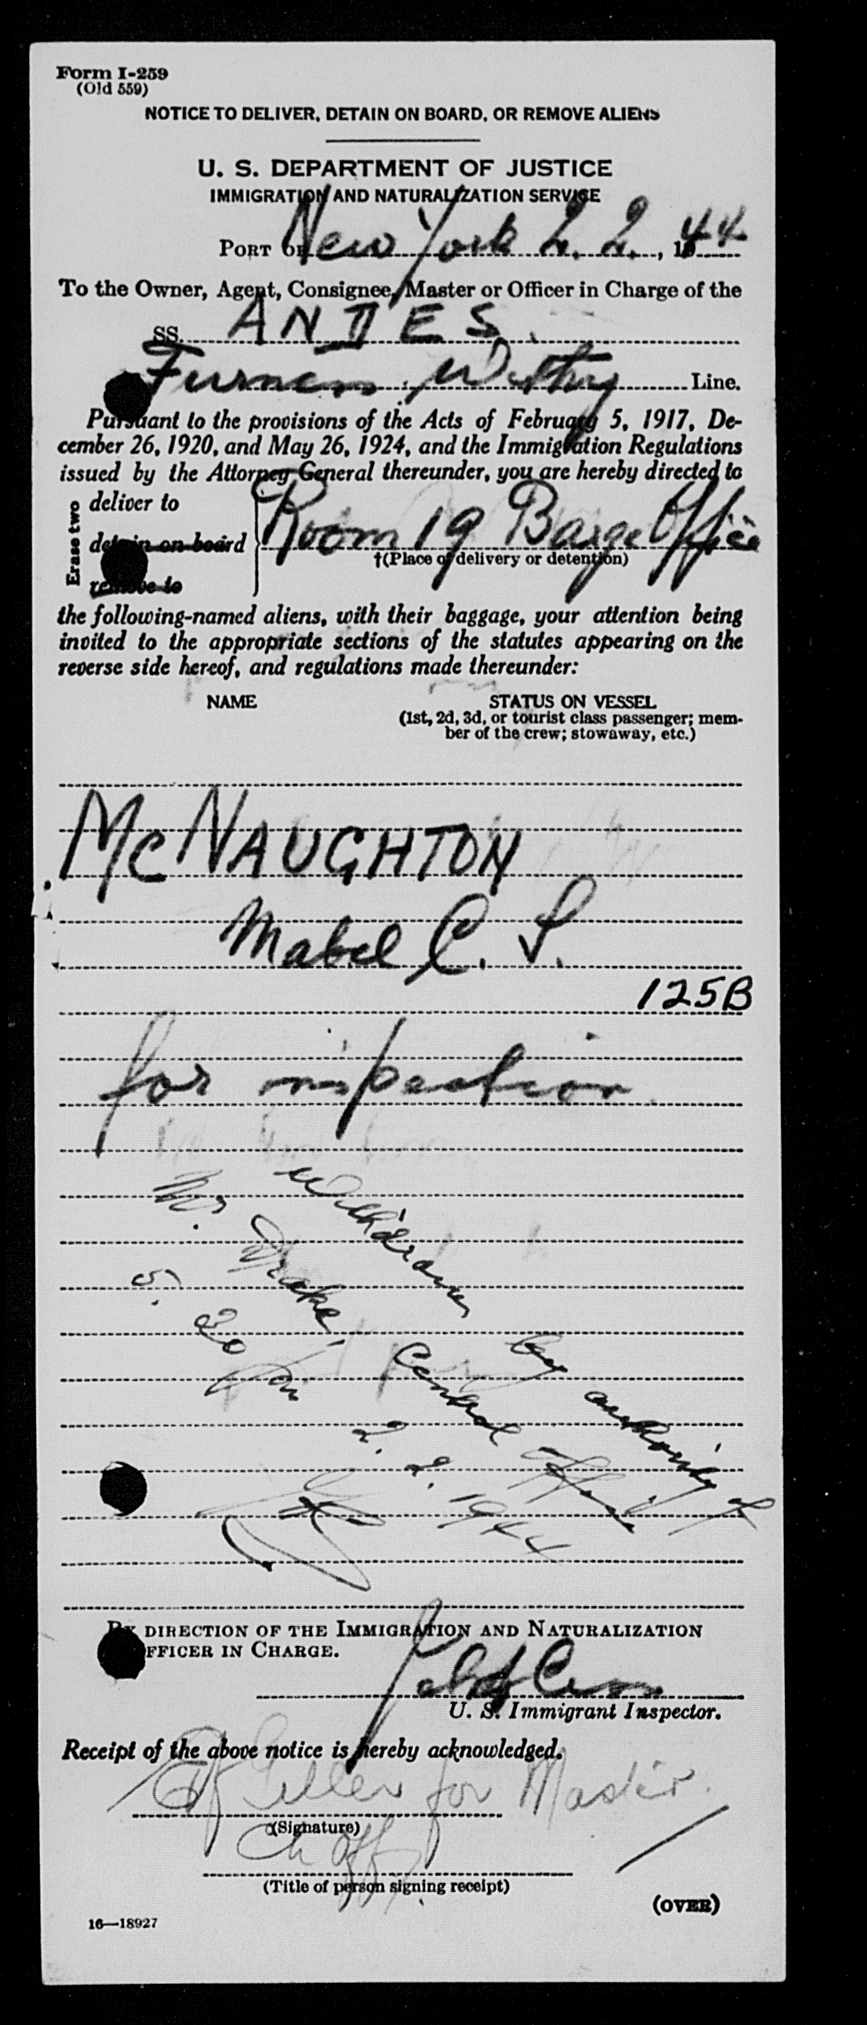 Form I-259
(Old 559)
NOTICE TO DELIVER, DETAIN ON BOARD, OR REMOVE ALIENS
U. S. DEPARTMENT OF JUSTICE
IMMIGRATION AND NATURALIZATION SERVICE
PORT OF New York 2. 2., 1944
To the Owner, Agent, Consignee, Master or Officer in Charge of the
SS. ANDES.
Furness, Withy Line.
Pursuant to the provisions of the Acts of February 5, 1917, De-
cember 26, 1920, and May 26, 1924, and the Immigration Regulations
issued by the Attorney General thereunder, you are hereby directed to
Erase two
deliver to
detain on board
remove to
Room 19 Barge Office
†(Place of delivery or detention)
the following-named aliens, with their baggage, your attention being
invited to the appropriate sections of the statutes appearing on the
reverse side hereof, and regulations made thereunder:
NAME STATUS ON VESSEL
(1st, 2d, 3d, or tourist class passenger; mem-
ber of the crew; stowaway, etc.)
McNAUGHTON
Mabel C. S.
125B
for inspection
Withdrawn by authority of
Mr. Drake, Central Office
5.20 pm 2.2.1944
BY DIRECTION OF THE IMMIGRATION AND NATURALIZATION
OFFICER IN CHARGE.
U. S. Immigrant Inspector.
Receipt of the above notice is hereby acknowledged.
for Master.
(Signature)
Ch Off
(Title of person signing receipt)
(OVER)
16—18927